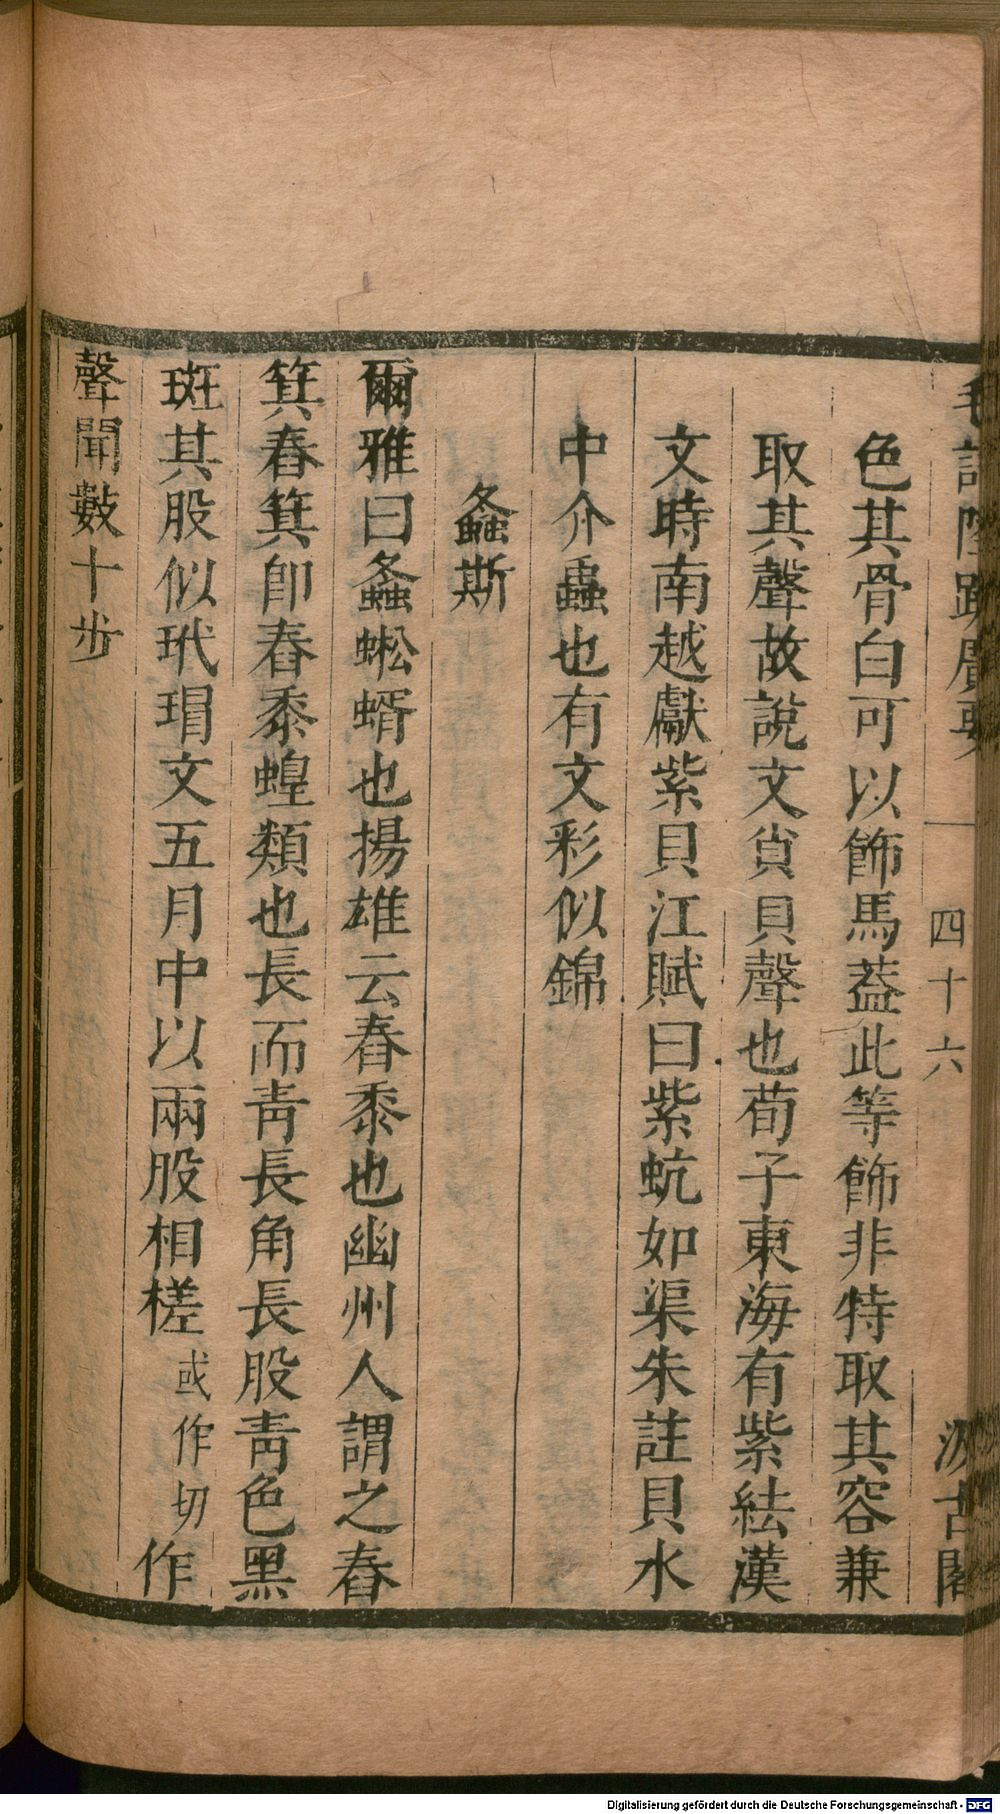 毛詩陸疏廣要
四十六
汲古閣
色其骨白可以飾馬葢此等飾非特取其容兼
取其聲故說文䝙貝聲也荀子東海有紫紶漢
文時南越獻紫貝江賦曰紫蚢如渠朱註貝水
中介蟲也有文彩似錦
螽斯
爾雅曰螽蜙蝑也揚雄云舂黍也幽州人謂之舂
箕舂箕卽舂黍蝗類也長而靑長角長股靑色黑
斑其股似玳瑁文五月中以兩股相槎或作切作
聲聞數十步
Digitalisierung gefördert durch die Deutsche Forschungsgemeinschaft - DFG